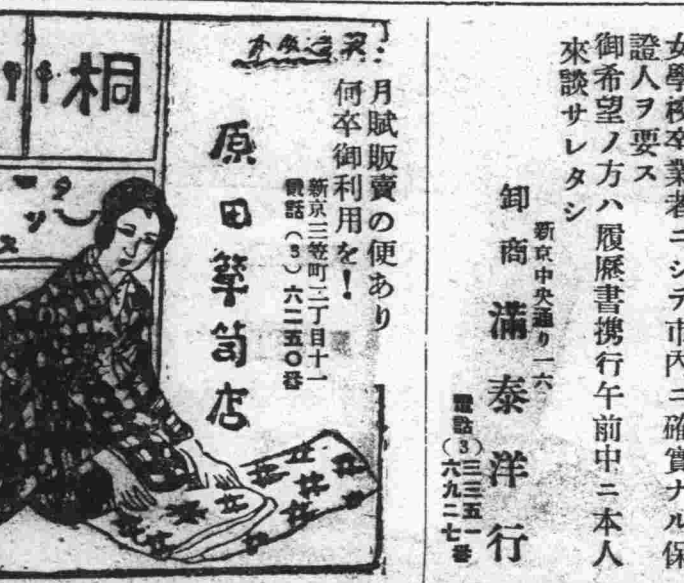 女學校卒業者ニシテ市内ニ確實ナル保
證人ヲ要ス
御希望ノ方ハ履歷書携行午前中ニ本人
來談サレタシ
新京中央通り一六
卸商 滿泰洋行
電話(3)三三五一
六九二七番
月賦販賣の便あり
何卒御利用を!
新京三笠町三丁目十一
電話(3)六二五〇番
原田簞笥店
桐
タンス